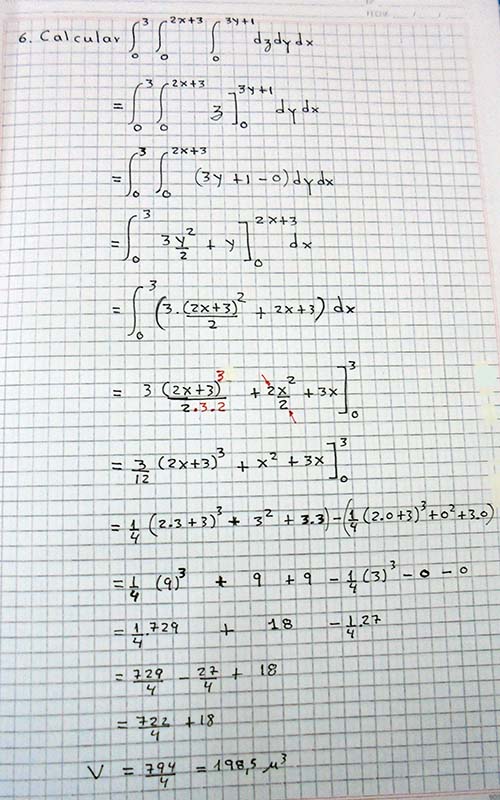 6. Calcular ∫₀³ ∫₀^{2x+3} ∫₀^{3y+1} dzdydx
= ∫₀³ ∫₀^{2x+3} z]₀^{3y+1} dydx
= ∫₀³ ∫₀^{2x+3} (3y+1-0)dydx
= ∫₀³ 3y²/2 + y]₀^{2x+3} dx
= ∫₀³ (3.(2x+3)²/2 + 2x+3) dx
= 3 (2x+3)³/2.3.2 + 2x²/2 + 3x]₀³
= 3/12 (2x+3)³ + x² + 3x]₀³
= 1/4 (2.3+3)³ + 3² + 3.3) - (1/4 (2.0+3)³+0²+3.0)
= 1/4 (9)³ + 9 + 9 - 1/4 (3)³ - 0 - 0
= 1/4 . 729 + 18 - 1/4 . 27
= 729/4 - 27/4 + 18
= 722/4 + 18
V = 794/4 = 198,5 μ³